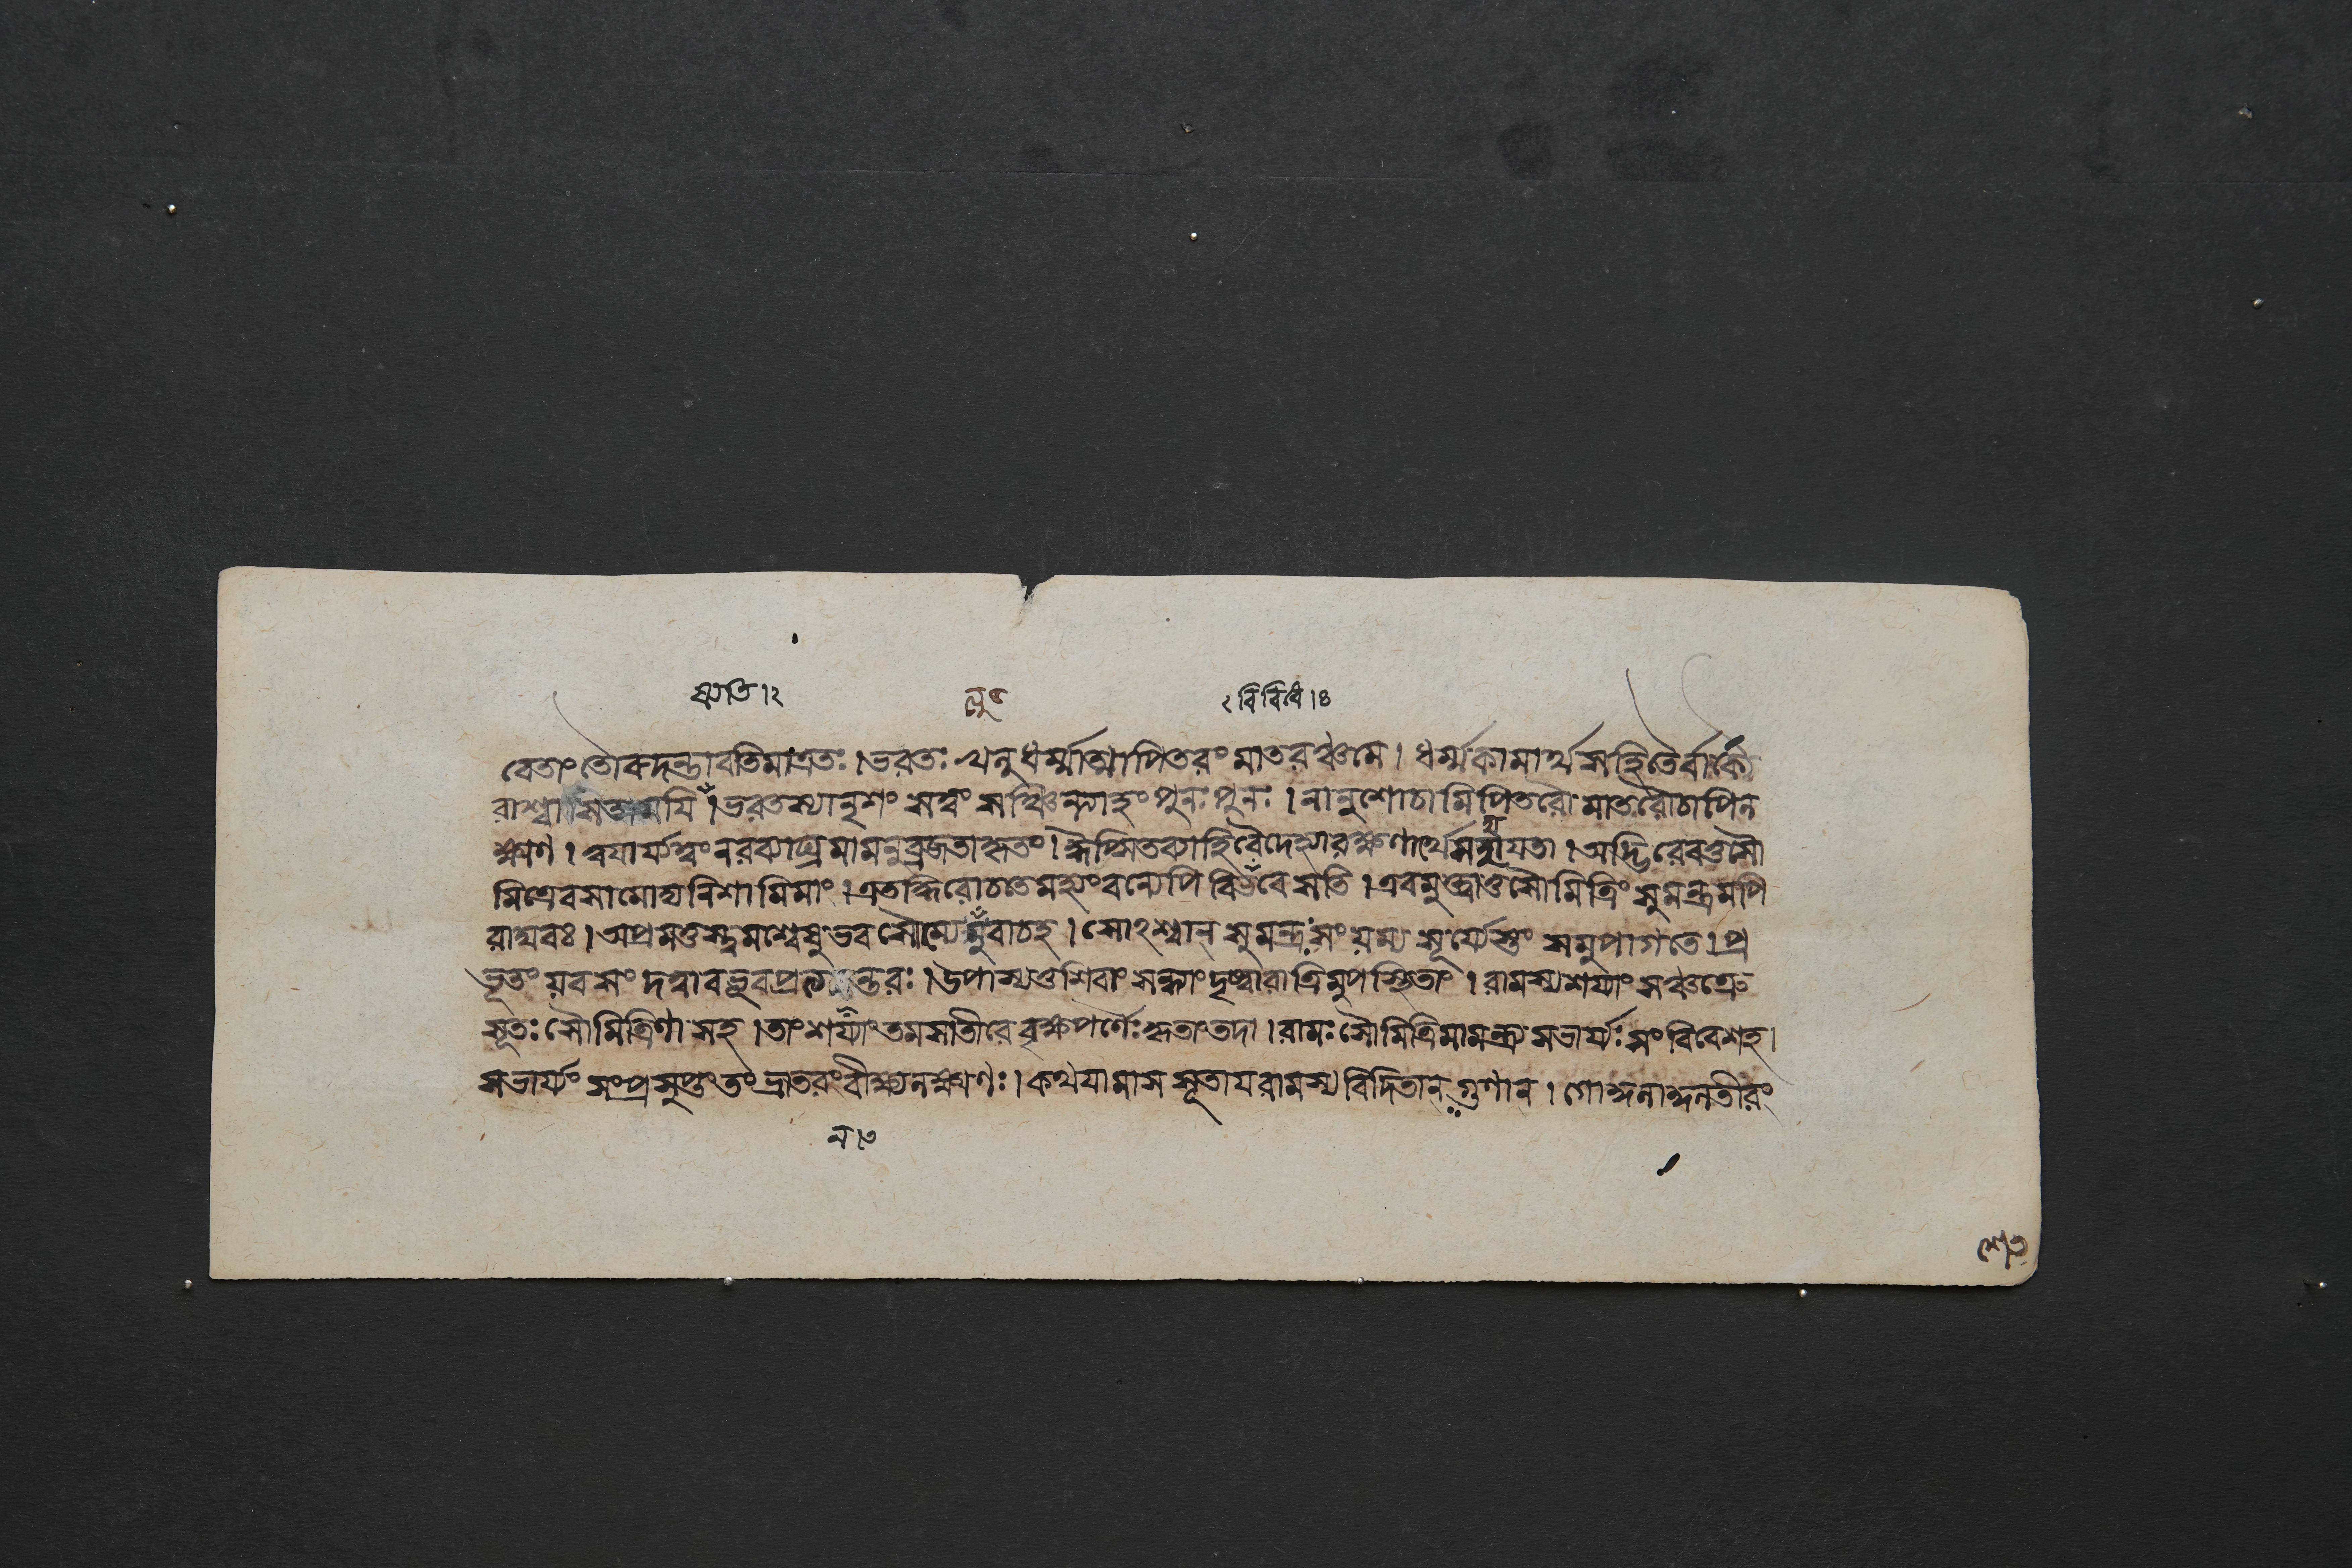 স্যতি।২ নু ২ বিবিধে।৪
বেতাং তৌ রুদন্তাবতিমাত্রতঃ। ভরতঃ খনু ধর্ম্মাত্মা পিতরং মাতরঞ্চ মে। ধর্ম্মকামার্থসহিতৈর্বাক্যৈ
রাশ্বা ময়ি। ভরতস্যানৃশং সত্বং সঞ্চিন্ত্যাহং পুনঃ পুনঃ। নানুশোচামি পিতরৌ মাতরৌ চাপি ন
ক্ষ্মণ। ত্বয়া র্য্যত্বং নরব্যাঘ্র মামনুব্রজতা কৃতং। হি বৈদেহ্যা রক্ষণার্থে তা। অদ্ভিরেব তু সৌ
মিত্রে বসামোদ্য নিশামিমাং। এতদ্ধি রোচতে মহ্যং বন্যেপি বিবিধে সতি। এবমুক্ত্বা তু সৌমিত্রিং সুমন্ত্রমপি
রাঘবঃ। অপ্রমত্তস্ত্বমশ্বেষু ভব সৌম্যেত্যুবাচ হ। সোঽশ্বান্ সুমন্ত্রঃ সংযম্য সূর্য্যেস্তং সমুপাগতে। প্র
ভূতং যবসং দত্বা বভূব প্রত্যনন্তরঃ। উপাস্য তু শিবাং সন্ধ্যাং দৃষ্ট্বা রাত্রিমুপস্থিতাং। রামস্য শয্যাং সঞ্চক্রে
সূতঃ সৌমিত্রিণা সহ। তাং শয্যাং তমসাতীরে বৃক্ষপর্ণৈঃ কৃতাং তদা। রামঃ সৌমিত্রিমামন্ত্র্য সভার্য্যঃ সংবিবেশ হ।
সভার্য্যং সংপ্রসুপ্তং তং ভ্রাতরং বীক্ষ্য নক্ষ্মণঃ। কথয়ামাস সূতায় রামস্য বিদিতান্ গুণান্। গোকুলাকুলতীরং
ন।৩